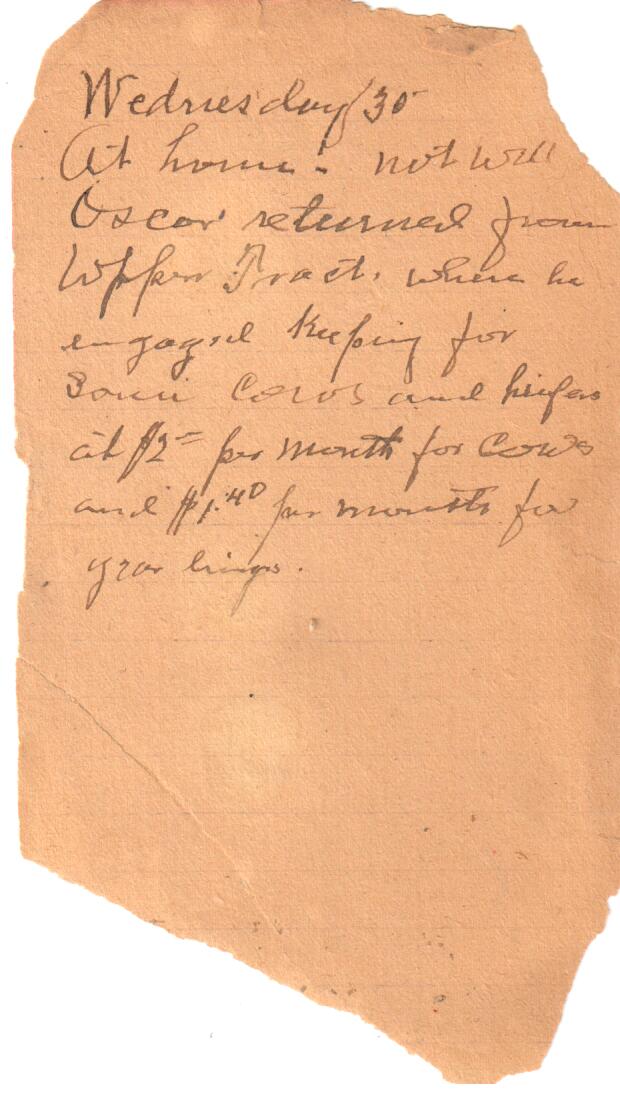 Wednesday 30
At home. not well
Oscar returned from
Upper Tract, where he
engaged keeping for
Some Cows and heifers
at $2= per month for Cows
and $1.40 per month for
year lings.